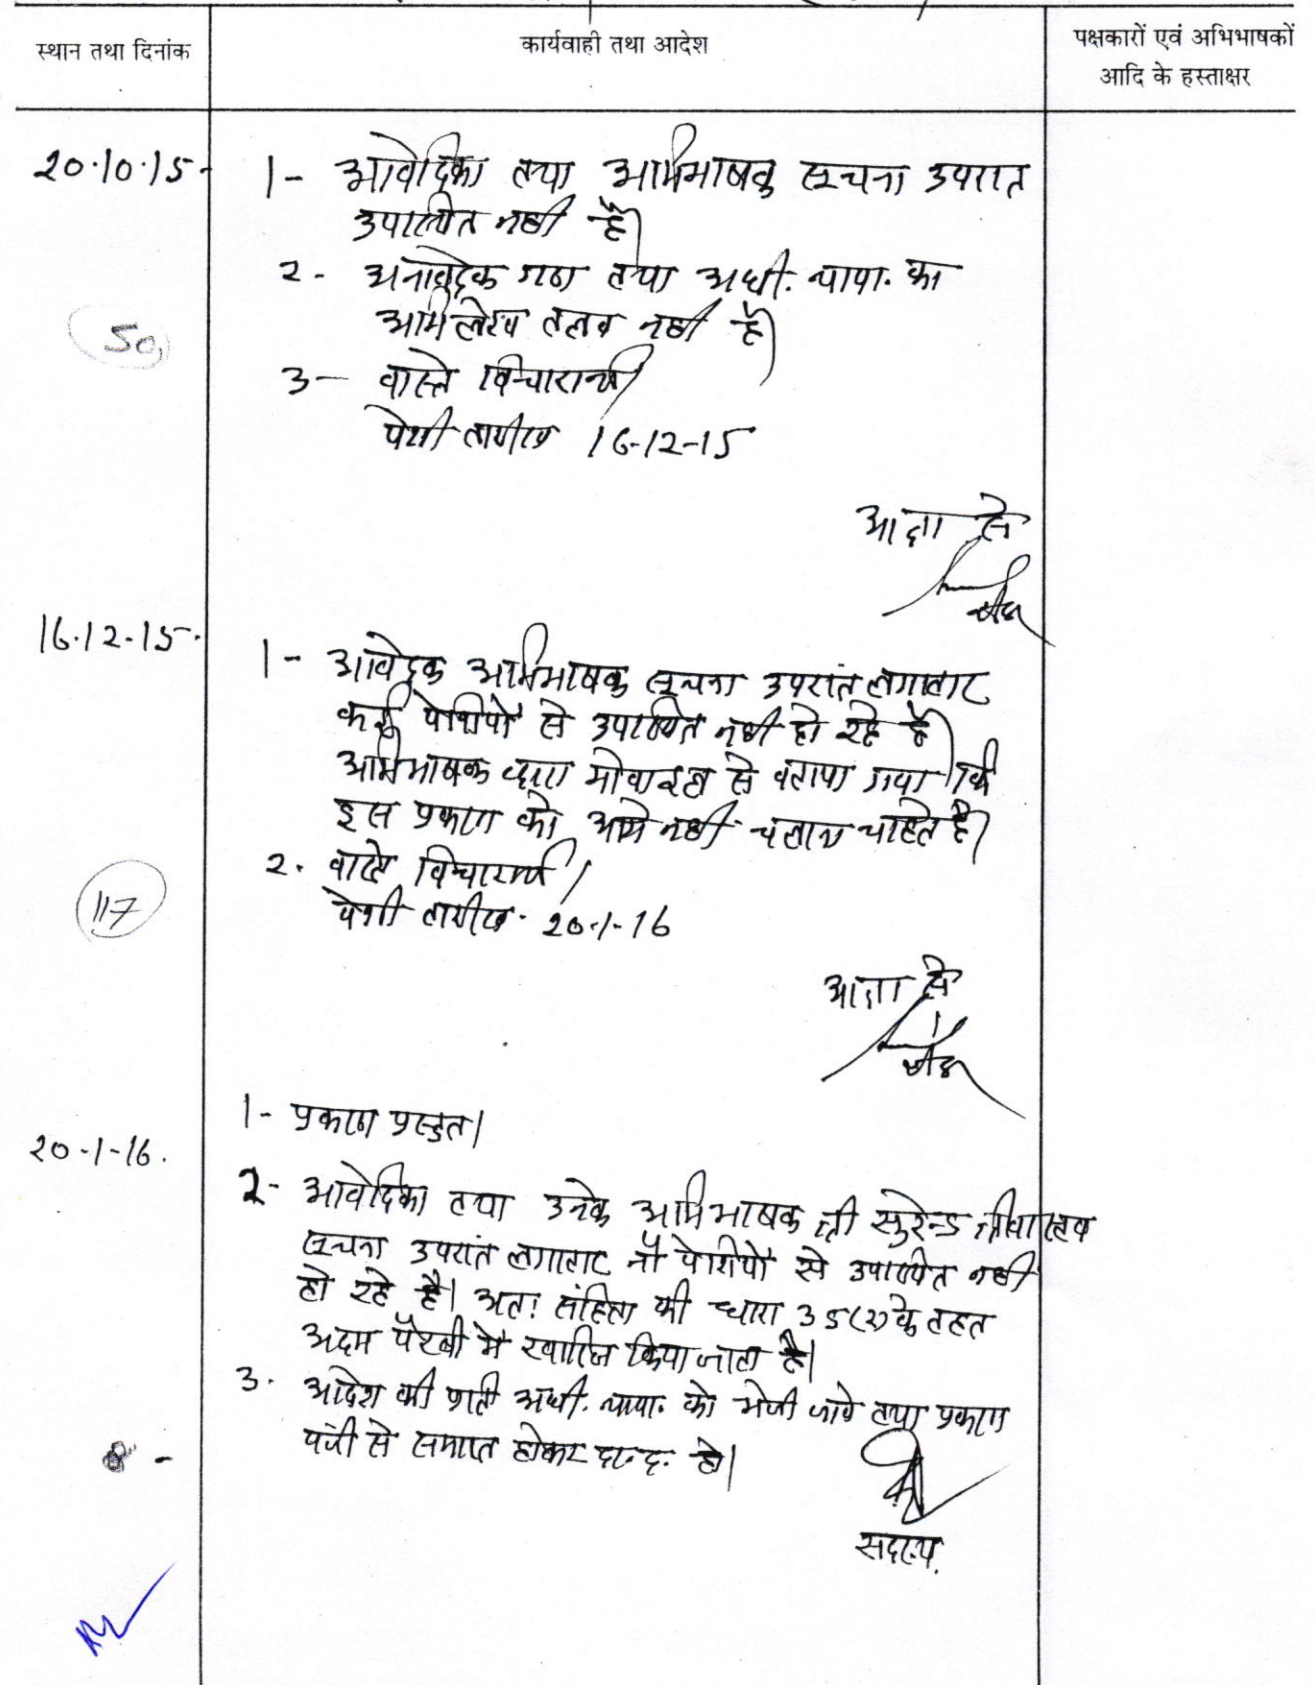 स्थान तथा दिनांक
कार्यवाही तथा आदेश
पक्षकारों एवं अभिभाषकों
आदि के हस्ताक्षर
20.10.15
1- आवेदिका तथा अभिभाषक सूचना उपरांत
उपस्थित नहीं है।
2- अनावेदक गण तथा अधी. न्याया. का
अभिलेख तलब नहीं है।
50
3- वास्ते विचारार्थ।
पेशी तारीख 16-12-15
आज्ञा से
16.12.15.
1- आवेदक अभिभाषक सूचना उपरांत लगातार
कई पेशियों से उपस्थित नहीं हो रहे हैं।
अभिभाषक द्वारा मोबाइल से बताया गया कि
इस प्रकरण को आगे नहीं चलाना चाहते है।
2. वास्ते विचारार्थ।
117
पेशी तारीख. 20-1-16
आज्ञा से
1- प्रकरण प्रस्तुत।
20-1-16.
2- आवेदिका तथा उनके अभिभाषक श्री सुरेन्द्र श्रीवास्तव
सूचना उपरांत लगातार नौ पेशियों से उपस्थित नहीं
हो रहे है। अतः संहिता की धारा 35(2) के तहत
अदम पैरवी में खारिज किया जाता है।
3. आदेश की प्रति अधी. न्याया. को भेजी जावे तथा प्रकरण
पंजी से समाप्त होकर दा.द. हो।
8 -
सदस्य.